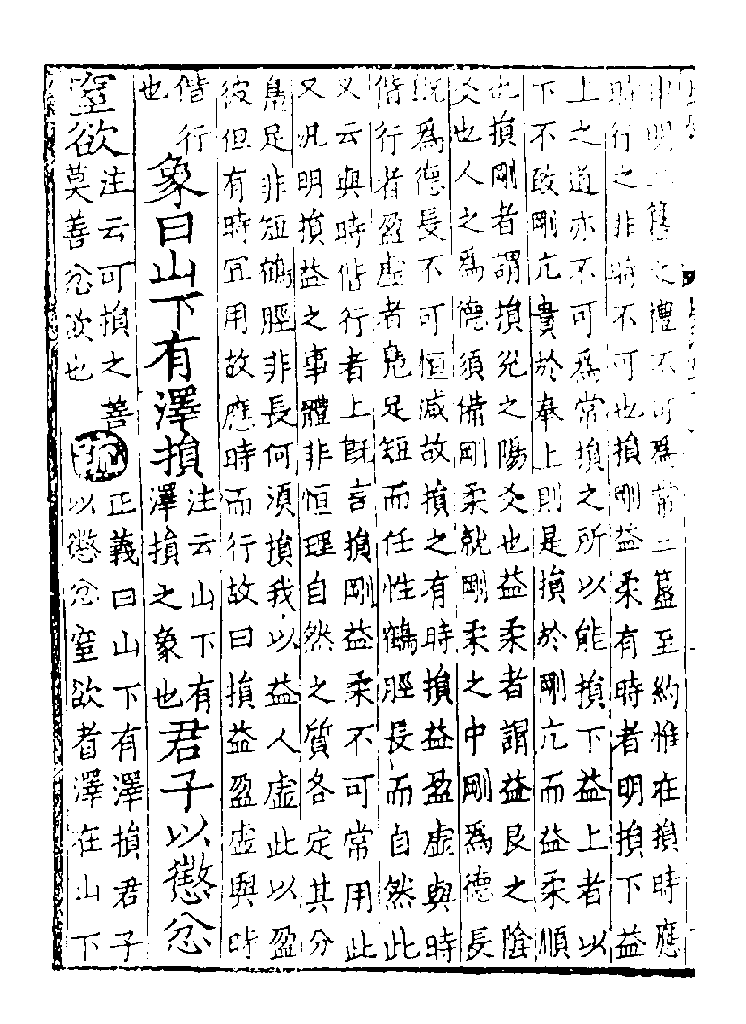 非明二簋之禮不可為常二簋至約惟在損時應
時行之非時不可也損剛益柔有時者明損下益
上之道亦不可為常損之所以能損下益上者以
下不敢剛亢貴於奉上則是損於剛亢而益柔順
也損剛者謂損兊之陽爻也益柔者謂益艮之陰
爻也人之為德須備剛柔就剛柔之中剛為德長
既為德長不可恒減故損之有時損益盈虛與時
偕行者盈虛者鳧足短而任性鶴脛長而自然此
又云與時偕行者上既言損剛益柔不可常用此
又汎明損益之事體非恒理自然之質各定其分
鳧足非短鶴脛非長何須損我以益人虛此以盈
彼但有時宜用故應時而行故曰損益盈虛與時
偕行
也
象曰山下有澤損
注云山下有
澤損之象也
君子以懲忿
窒欲
注云可損之善
莫善忿欲也
疏
正義曰山下有澤損君子
以懲忿窒欲者澤在山下